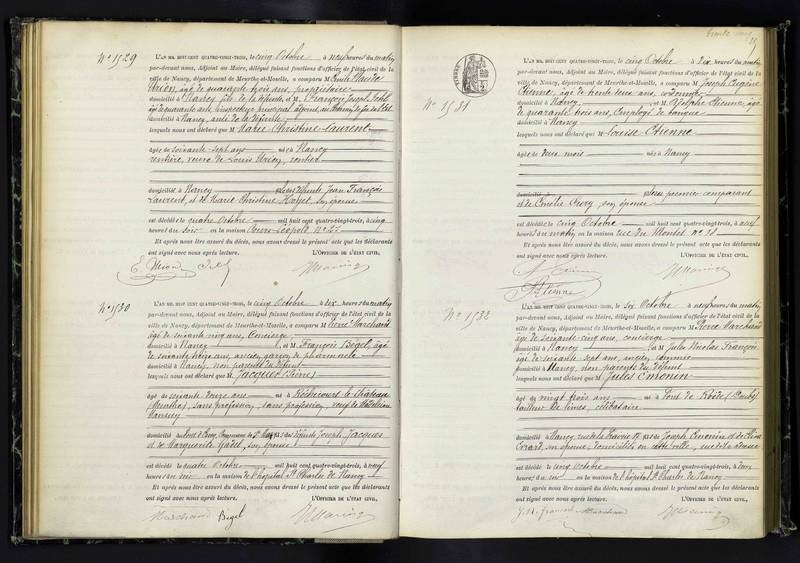 N° 1529
L'AN MIL HUIT CENT QUATRE-VINGT-TROIS, le cinq Octobre à neuf heures du matin
par-devant nous, Adjoint au Maire, délégué faisant fonctions d'officier de l'état civil de la
ville de Nancy, département de Meurthe-et-Moselle, a comparu M. Emile
âgé de quarante trois ans, propriétaire
domicilié à Nancy, fils de la défunte, et M. François Joseph
âgé de quarante
domicilié à Nancy, ami de la défunte
lesquels nous ont déclaré que M Marie Christine Laurent
âgée de soixante sept ans née à Nancy
rentière, veuve de Louis rentier
domiciliée à Nancy Jean François
Laurent, et de Marie Christine Hayet, son épouse
est décédée le quatre Octobre mil huit cent quatre-vingt-trois, à cinq
heures du soir en la maison Cours Léopold N° 27
Et après nous être assuré du décès, nous avons dressé le présent acte que les déclarants
ont signé avec nous après lecture. L'OFFICIER DE L'ÉTAT CIVIL,
N° 1530
L'AN MIL HUIT CENT QUATRE-VINGT-TROIS, le cinq Octobre à dix heures du matin
par-devant nous, Adjoint au Maire, délégué faisant fonctions d'officier de l'état civil de la
ville de Nancy, département de Meurthe-et-Moselle, a comparu M Pierre Marchand
âgé de soixante cinq ans, Concierge
domicilié à Nancy, et M. François Begel, âgé
de soixante treize ans, ancien garçon de pharmacie
domicilié à Nancy, non parents du défunt
lesquels nous ont déclaré que M. Jacques (Pierre)
âgé de soixante douze ans né à Réchicourt le Château
(Meurthe), sans profession, veuf de
domicilié de Joseph Jacques
et de Marguerite son épouse
est décédé le quatre Octobre mil huit cent quatre-vingt-trois, à neuf
heures en la maison de l'hôpital St Charles de Nancy
Et après nous être assuré du décès, nous avons dressé le présent acte que les déclarants
ont signé avec nous après lecture. L'OFFICIER DE L'ÉTAT CIVIL,
Marchand Begel
N° 1531
L'AN MIL HUIT CENT QUATRE-VINGT-TROIS, le cinq Octobre à dix heures du matin
par-devant nous, Adjoint au Maire, délégué faisant fonctions d'officier de l'état civil de la
ville de Nancy, département de Meurthe-et-Moselle, a comparu M. Joseph Eugène
Etienne, âgé de trente deux ans, cordonnier
domicilié à Nancy, et M Adolphe Etienne, âgé
de quarante trois ans, Employé de banque
domicilié à Nancy
lesquels nous ont déclaré que M Louise Etienne
âgée de deux mois née à Nancy
premier comparant
et de Emilie son épouse
est décédée le cinq Octobre mil huit cent quatre-vingt-trois, à neuf
heures du matin en la maison rue du Montet N° 38
Et après nous être assuré du décès, nous avons dressé le présent acte que les déclarants
ont signé avec nous après lecture. L'OFFICIER DE L'ÉTAT CIVIL,
N° 1532
L'AN MIL HUIT CENT QUATRE-VINGT-TROIS, le six Octobre à neuf heures du matin
par-devant nous, Adjoint au Maire, délégué faisant fonctions d'officier de l'état civil de la
ville de Nancy, département de Meurthe-et-Moselle, a comparu M. Pierre Marchand
âgé de soixante cinq ans, concierge
domicilié à Nancy, et M Jules Nicolas François
âgé de soixante sept ans, ancien
domicilié à Nancy, non parents du défunt
lesquels nous ont déclaré que M Jules Emonin
âgé de vingt trois ans né à Pont de Roide (Doubs)
tailleur de limes, célibataire
domicilié à Nancy Joseph Emonin et de
son épouse, domiciliés en cette ville
est décédé le cinq Octobre mil huit cent quatre-vingt-trois, à
heures en la maison de l'hôpital St Charles de Nancy
Et après nous être assuré du décès, nous avons dressé le présent acte que les déclarants
ont signé avec nous après lecture. L'OFFICIER DE L'ÉTAT CIVIL,